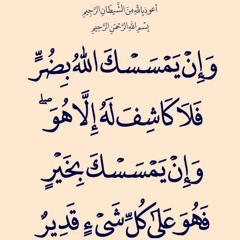 أعوذ بالله من الشيطان الرجيم
بسم الله الرحمن الرحيم
وَإِنْ يَمْسَسْكَ اللهُ بِضُرٍّ
فَلَا كَاشِفَ لَهُ إِلَّا هُوَ ۖ
وَإِنْ يَمْسَسْكَ بِخَيْرٍ
فَهُوَ عَلَىٰ كُلِّ شَيْءٍ قَدِيرٌ